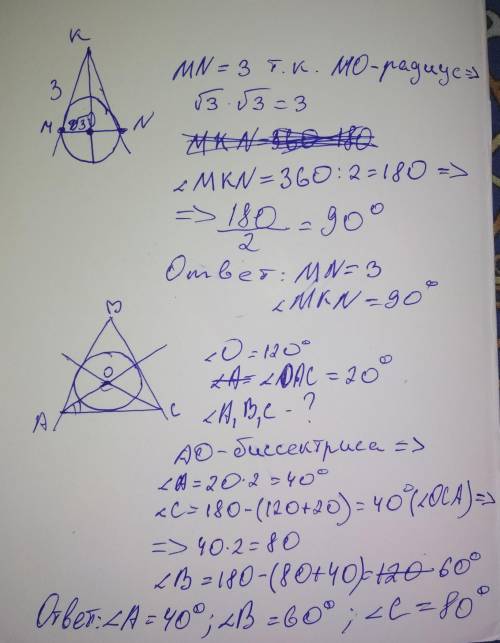 K
3
M √3 N
MN = 3 т.к. MO-радиус =>
√3 · √3 = 3
MKN = 360-180
∠MKN = 360 : 2 = 180 =>
=> 180/2 = 90°
Ответ: MN = 3
∠MKN = 90°
B
O
A C
∠O = 120°
∠A = ∠OAC = 20°
∠A, B, C - ?
AO-биссектриса =>
∠A = 20·2 = 40°
∠C = 180 - (120+20) = 40° (∠OCA) =>
=> 40·2 = 80
∠B = 180 - (80+40) = 120 60°
Ответ: ∠A = 40°; ∠B = 60°; ∠C = 80°